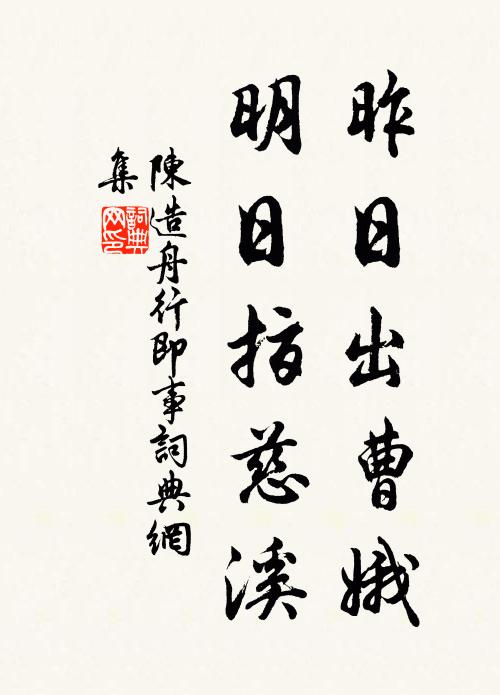 昨日出曹娥
明日指慈溪
陳造舟行即事詞典網
集
詞典
网印